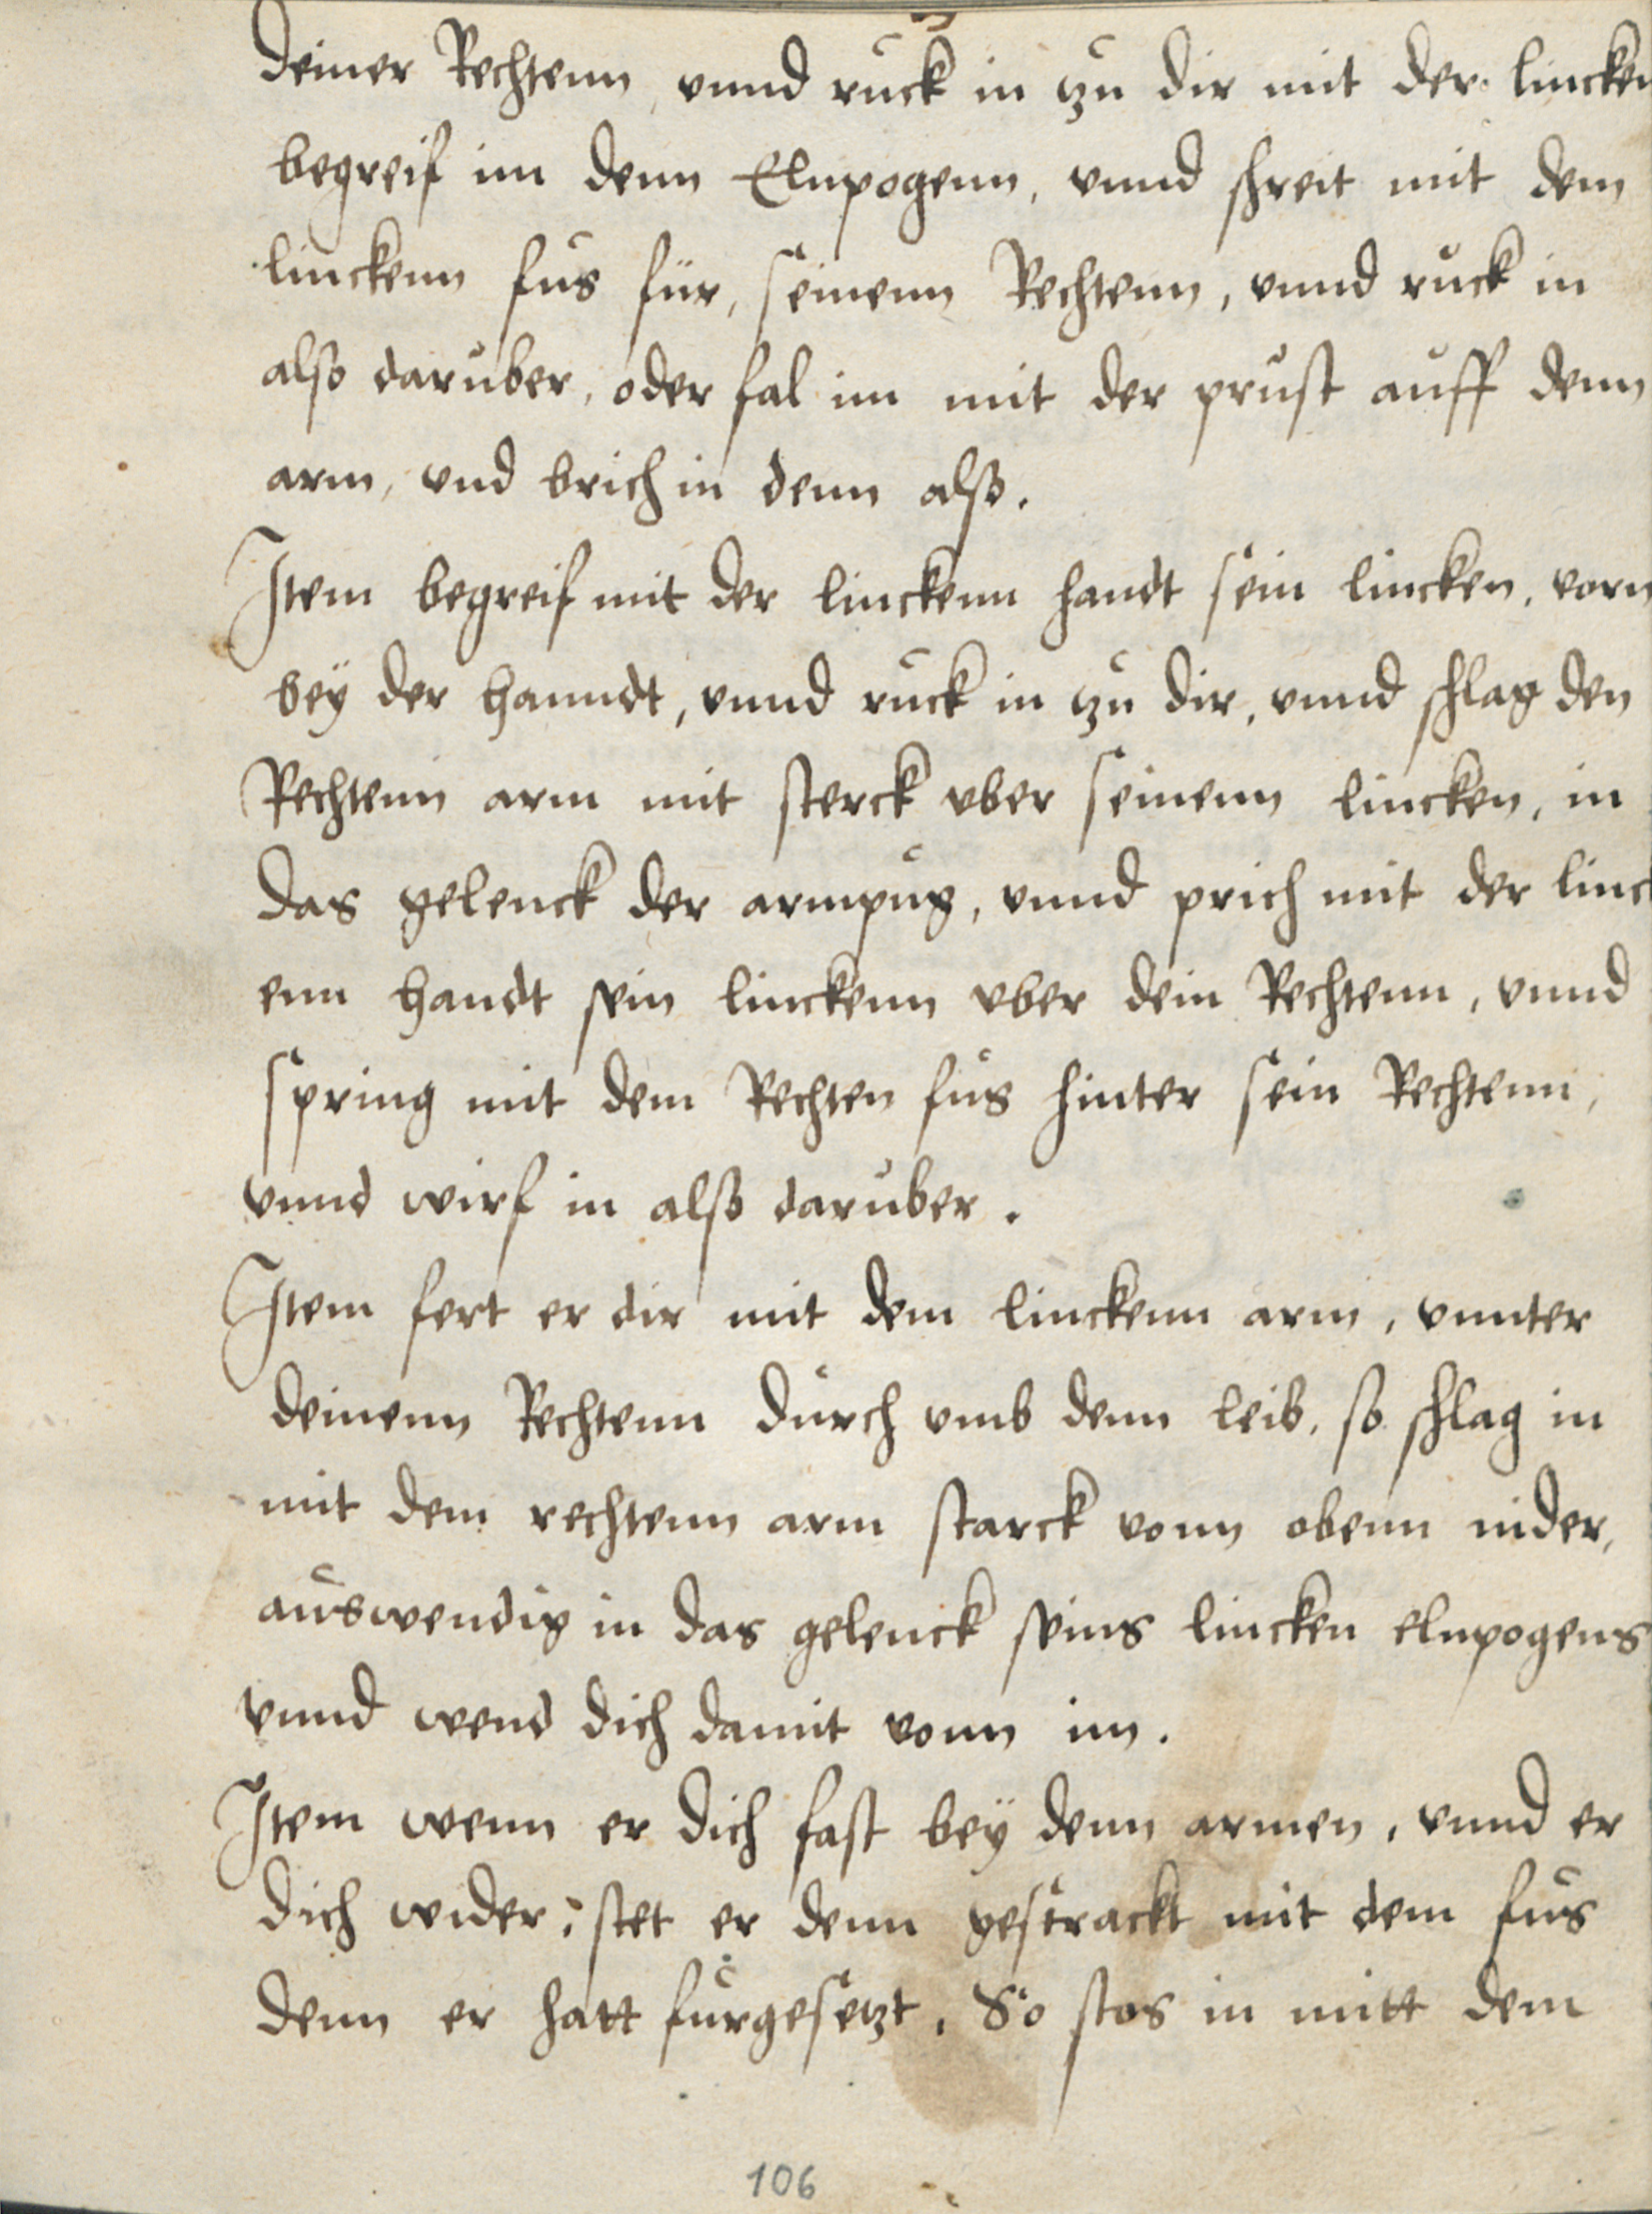 deiner Rechtenn vnnd ruck in zu dir mit der lincken
begreif im denn Elnpogenn, vnnd schreit mit dem
linckenn fus für, seinenn Rechtenn, vnnd ruck in
also daruber, oder fal im mit der prust auff denn
arm, vnd brich in denn also.
Item begreif mit der linckenn handt sein lincken, vorn
bey der hanndt, vnnd ruck in zu dir, vnnd schlag den
Rechtenn arm mit sterck vber seinenn lincken, in
das gelenck der armpug, vnnd prich mit der linck
enn handt sein linckenn vber dein Rechtenn, vnnd
spring mit dem Rechten fus hinter sein Rechtenn,
vnnd wirf in also daruber.
Item fert er dir mit dem linckenn arm, vnnter
deinenn Rechtenn durch vmb denn leib, so schlag in
mit dem rechtenn arm starck vonn obenn nider,
auswendig in das gelenck seins lincken elnpogens
vnnd wend dich damit vonn im.
Item wenn er dich fast bey denn armen, vnnd er
dich wider, stet er denn gestrackt mit dem fus
denn er hatt furgesetzt. So stos in mitt dem
106